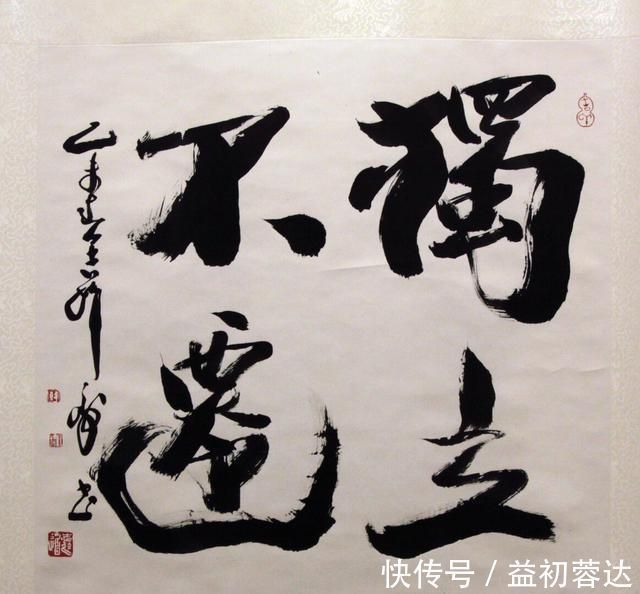 獨立
不遷
乙未
書
快传号 / 益初蓉达